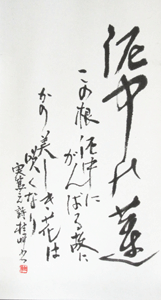 泥中の蓮
この根ハ泥中に
がんばる故に
かの美しき花は
咲くなり
実篤之詩